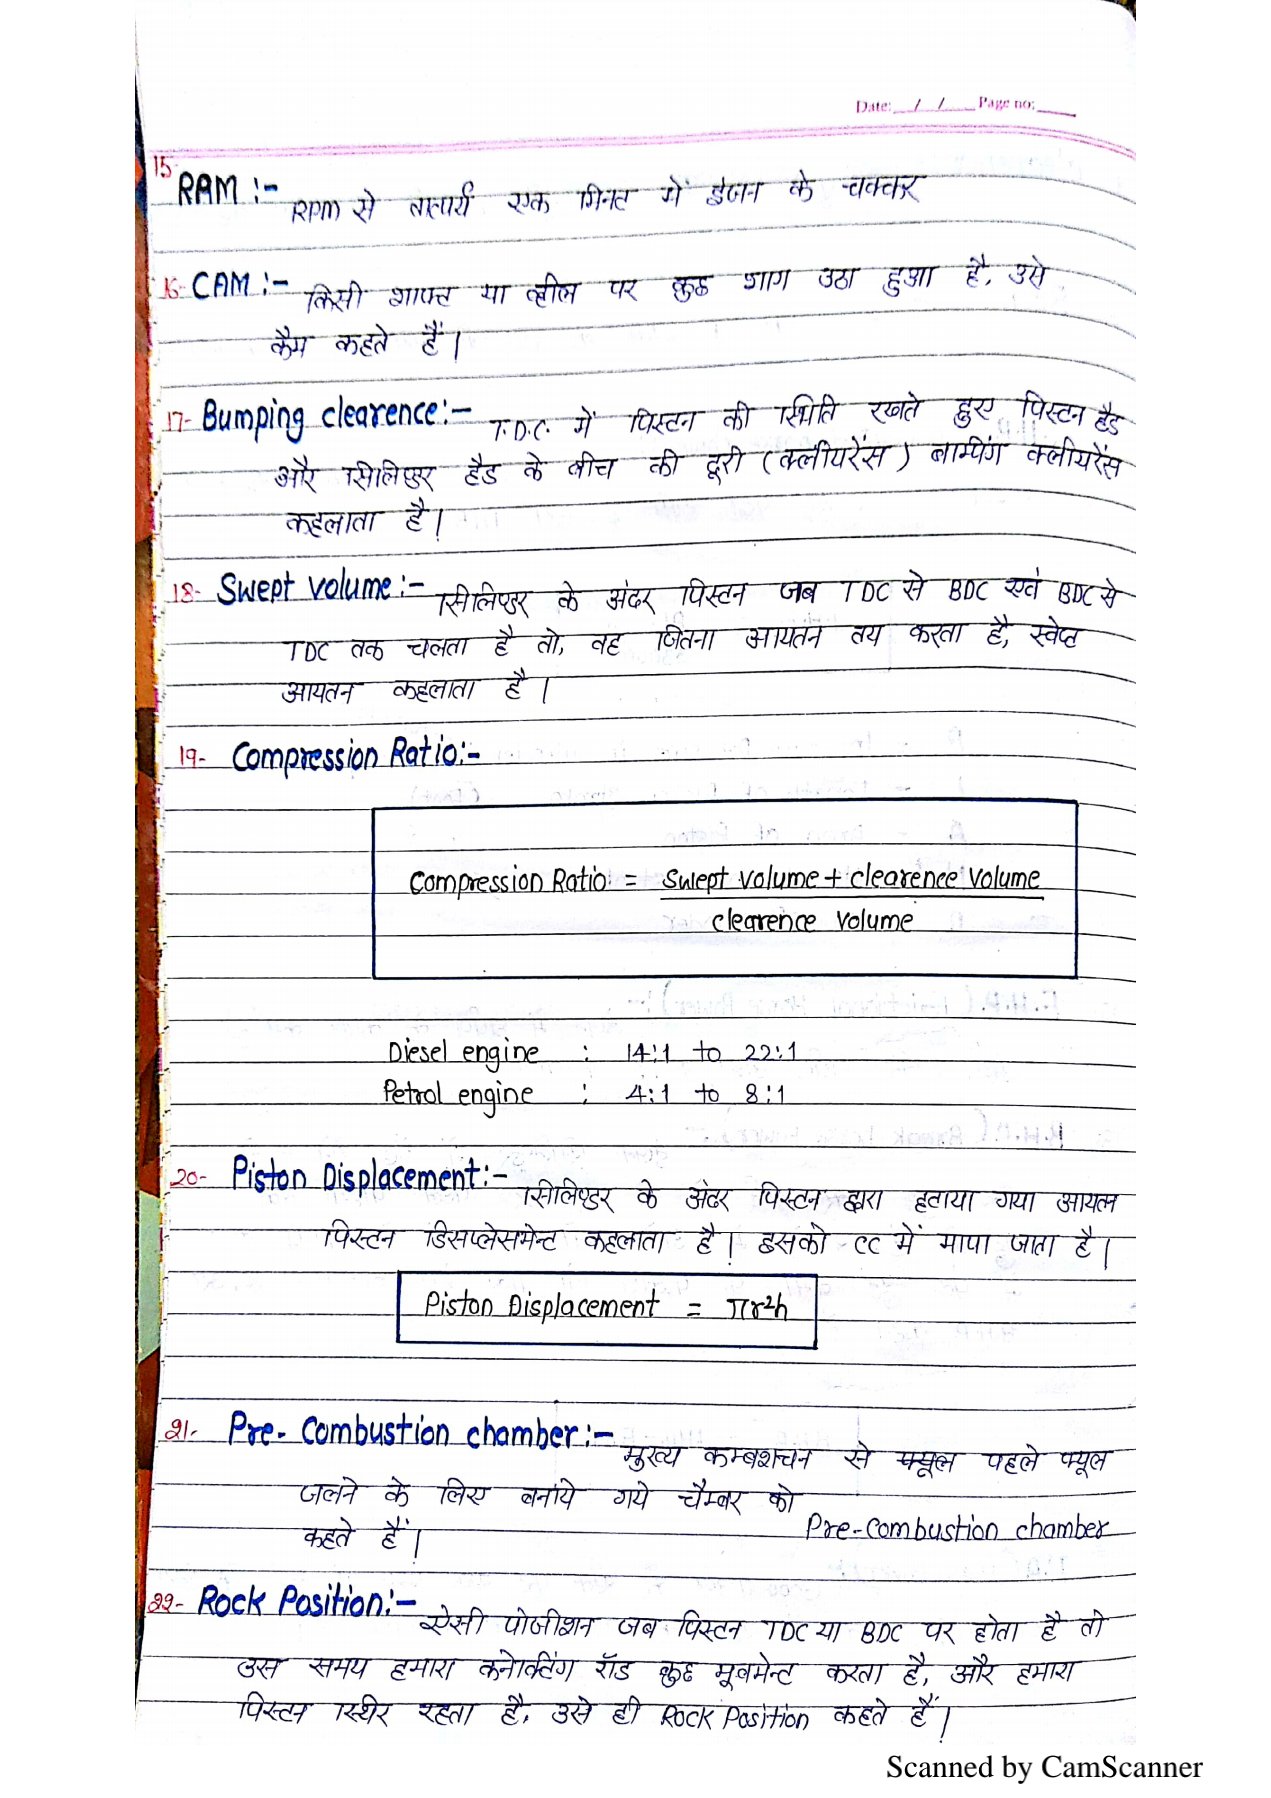 Date: __/__/____ Page no: ____
15- RAM :- RPM से तात्पर्य एक मिनट में इंजन के चक्कर
16- CAM :- किसी शाफ्ट या व्हील पर कुछ भाग उठा हुआ है, उसे
कैम कहते हैं।
17- Bumping clearence:- T.D.C. में पिस्टन की स्थिति रखते हुए पिस्टन हैड
और सिलिण्डर हैड के बीच की दूरी (क्लीयरेंस) बाम्पिंग क्लीयरेंस
कहलाता है।
18- Swept volume:- सिलिण्डर के अंदर पिस्टन जब TDC से BDC एवं BDC से
TDC तक चलता है तो, वह जितना आयतन तय करता है, स्वेप्ट
आयतन कहलाता है।
19- Compression Ratio:-
Compression Ratio = Swept volume + clearence volume
clearence volume
Diesel engine : 14:1 to 22:1
Petrol engine : 4:1 to 8:1
20- Piston Displacement:- सिलिण्डर के अंदर पिस्टन द्वारा हटाया गया आयतन
पिस्टन डिसप्लेसमेन्ट कहलाता है। इसको CC में मापा जाता है।
Piston Displacement = πr²h
21- Pre- Combustion chamber:- मुख्य कम्बशचन से फ्यूल पहले फ्यूल
जलने के लिए बनाये गये चैम्बर को Pre-combustion chamber
कहते हैं।
22- Rock Position:- ऐसी पोजीशन जब पिस्टन TDC या BDC पर होता है तो
उस समय हमारा कनेक्टिंग रॉड कुछ मूवमेन्ट करता है, और हमारा
पिस्टन स्थिर रहता है, उसे ही Rock Position कहते हैं।
Scanned by CamScanner